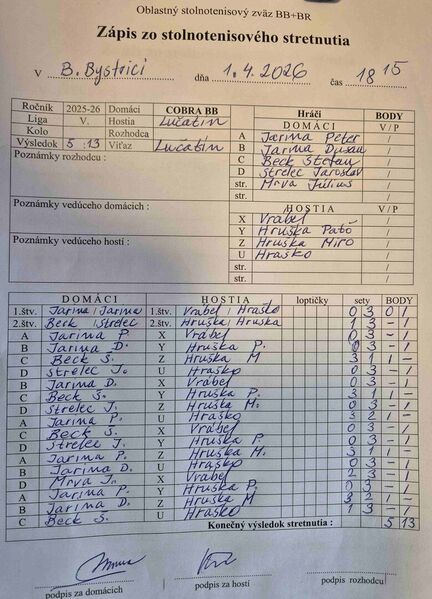 Oblastný stolnotenisový zväz BB+BR
Zápis zo stolnotenisového stretnutia
V B. Bystrici dňa 1.4.2026 čas 18 15
Ročník 2025-26 Domáci COBRA BB
Liga V. Hostia Lučatín
Kolo Rozhodca
Výsledok 5 :13 Víťaz Lučatín
Poznámky rozhodcu :
Poznámky vedúceho domácich :
Poznámky vedúceho hostí :
Hráči BODY
DOMÁCI V/P
A Jarina Peter /
B Jarina Dušan /
C Beck Štefan /
D Strelec Jaroslav /
str. Mrva Július /
HOSTIA V/P
X Vrábel /
Y Hruška Paťo /
Z Hruška Miro /
U Hraško /
str. /
str. /
DOMÁCI HOSTIA loptičky sety BODY
1.štv. Jarina / Jarina 1.štv. Vrábel / Hraško 0 3 0 1
2.štv. Beck / Strelec 2.štv. Hruška / Hruska 1 3 - 1
A Jarina P. X Vrábel 0 3 - 1
B Jarina D. Y Hruška P. 0 3 - 1
C Beck S. Z Hruška M 3 1 1 -
D Strelec J. U Hraško 0 3 - 1
B Jarina D. X Vrábel 0 3 - 1
C Beck S. Y Hruška P. 3 1 1 -
D Strelec J. Z Hruška M. 0 3 - 1
A Jarina P. U Hraško 3 2 1 -
C Beck S. X Vrábel 0 3 - 1
D Strelec J. Y Hruška P. 0 3 - 1
A Jarina P. Z Hruška M. 3 1 1 -
B Jarina D. U Hraško 0 3 - 1
D Mrva J. X Vrábel 2 3 - 1
A Jarina P. Y Hruška P. 0 3 - 1
B Jarina D. Z Hruška M 3 2 1 -
C Beck S. U Hraško 1 3 - 1
Konečný výsledok stretnutia : 5 13
podpis za domácich podpis za hostí podpis rozhodcu